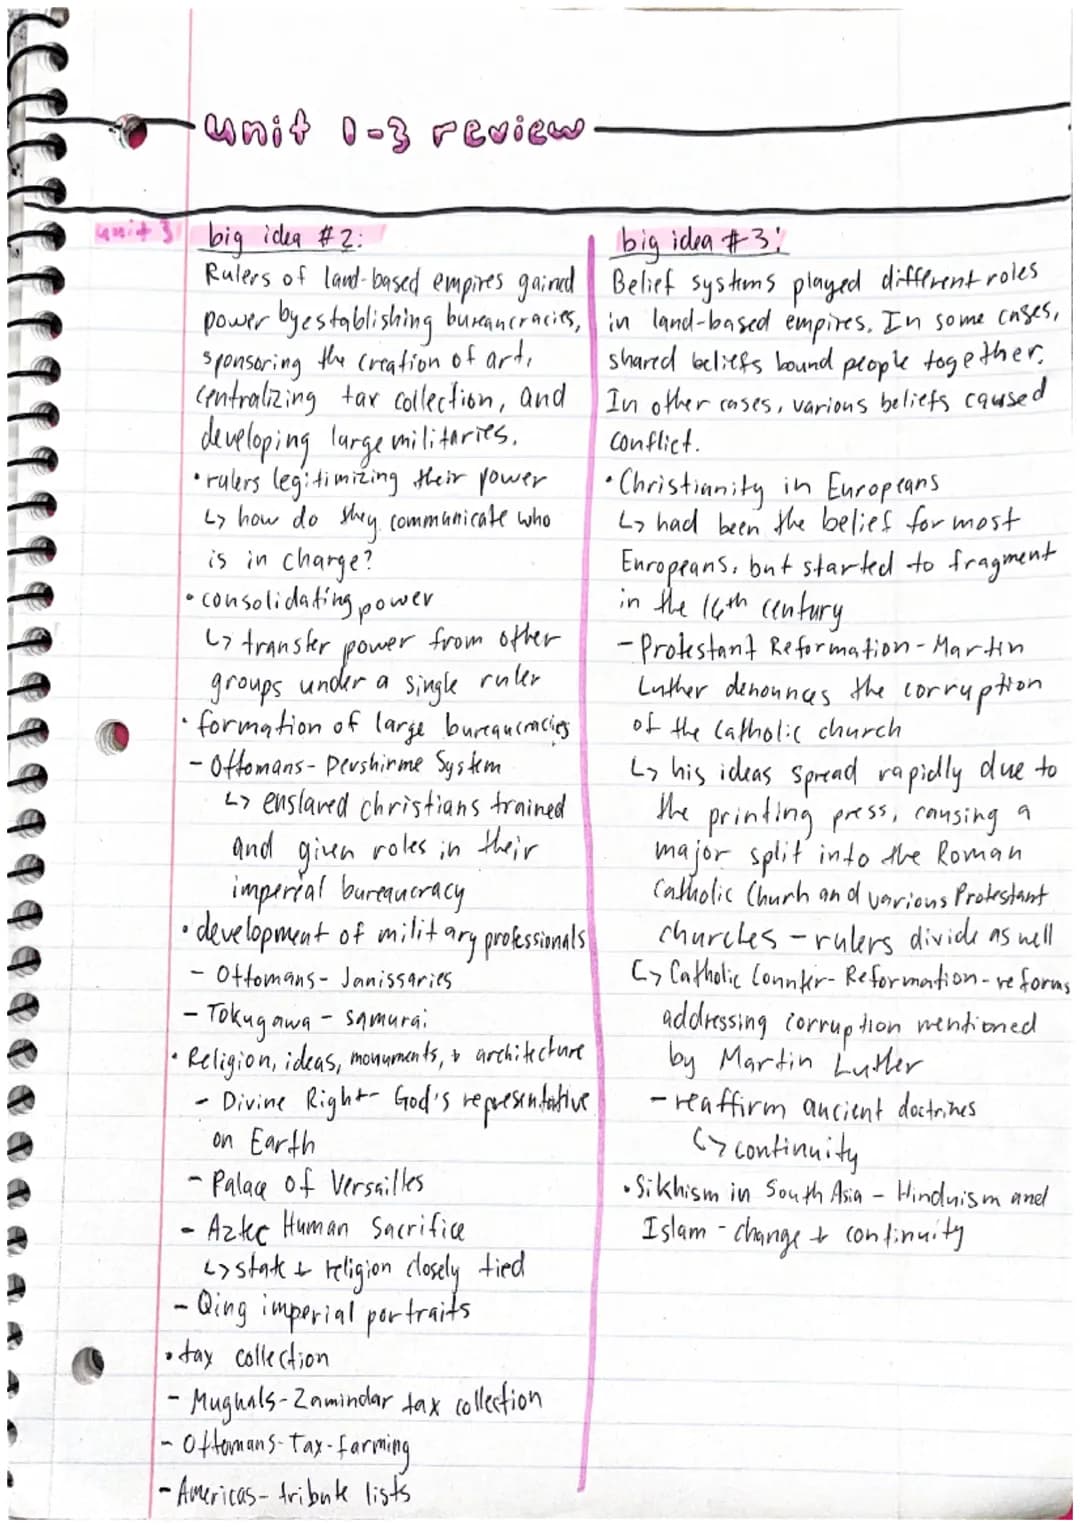 unit 1-3 review
unit 3
big idea #2:
Rulers of land-based empires gained
power by establishing bureaucracies,
sponsoring the creation of art,
centralizing tax collection, and
developing large militaries.
• rulers legitimizing their power
↳ how do they communicate who
is in charge?
• consolidating power
↳ transfer power from other
groups under a single ruler
• formation of large bureaucracies
- Ottomans- Devshirme System
↳ enslaved christians trained
and given roles in their
imperial bureaucracy
• development of military professionals
- Ottomans- Janissaries
- Tokugawa - samurai
• Religion, ideas, monuments, + architecture
- Divine Right- God's representative
on Earth
- Palace of Versailles
- Aztec Human Sacrifice
↳ state + religion closely tied
- Qing imperial portraits
• tax collection
- Mughals- Zamindar tax collection
- Ottomans- Tax-farming
- Americas- tribute lists
big idea #3:
Belief systems played different roles
in land-based empires. In some cases,
shared beliefs bound people together.
In other cases, various beliefs caused
conflict.
• Christianity in Europeans
↳ had been the belief for most
Europeans, but started to fragment
in the 16th century
- Protestant Reformation - Martin
Luther denounces the corruption
of the Catholic church
↳ his ideas spread rapidly due to
the printing press, causing a
major split into the Roman
Catholic Churh and various Protestant
churches - rulers divide as well
↳ Catholic Counter-Reformation - reforms
addressing corruption mentioned
by Martin Luther
- reaffirm ancient doctrines
↳ continuity
• Sikhism in South Asia - Hinduism and
Islam - change + continuity